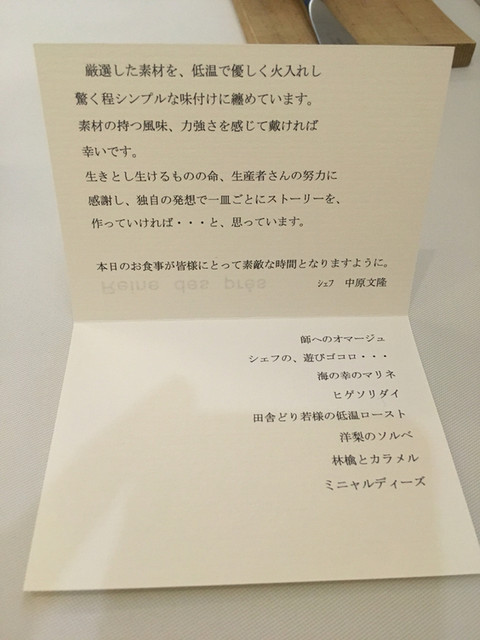 厳選した素材を、低温で優しく火入れし
驚く程シンプルな味付けに纏めています。
素材の持つ風味、力強さを感じて戴ければ
幸いです。
生きとし生けるものの命、生産者さんの努力に
感謝し、独自の発想で一皿ごとにストーリーを、
作っていければ・・・と、思っています。
本日のお食事が皆様にとって素敵な時間となりますように。
Reine des prés
ｼｪﾌ 中原文隆
師へのオマージュ
シェフの、遊びゴコロ・・・
海の幸のマリネ
ヒゲソリダイ
田舎どり若様の低温ロースト
洋梨のソルベ
林檎とカラメル
ミニャルディーズ